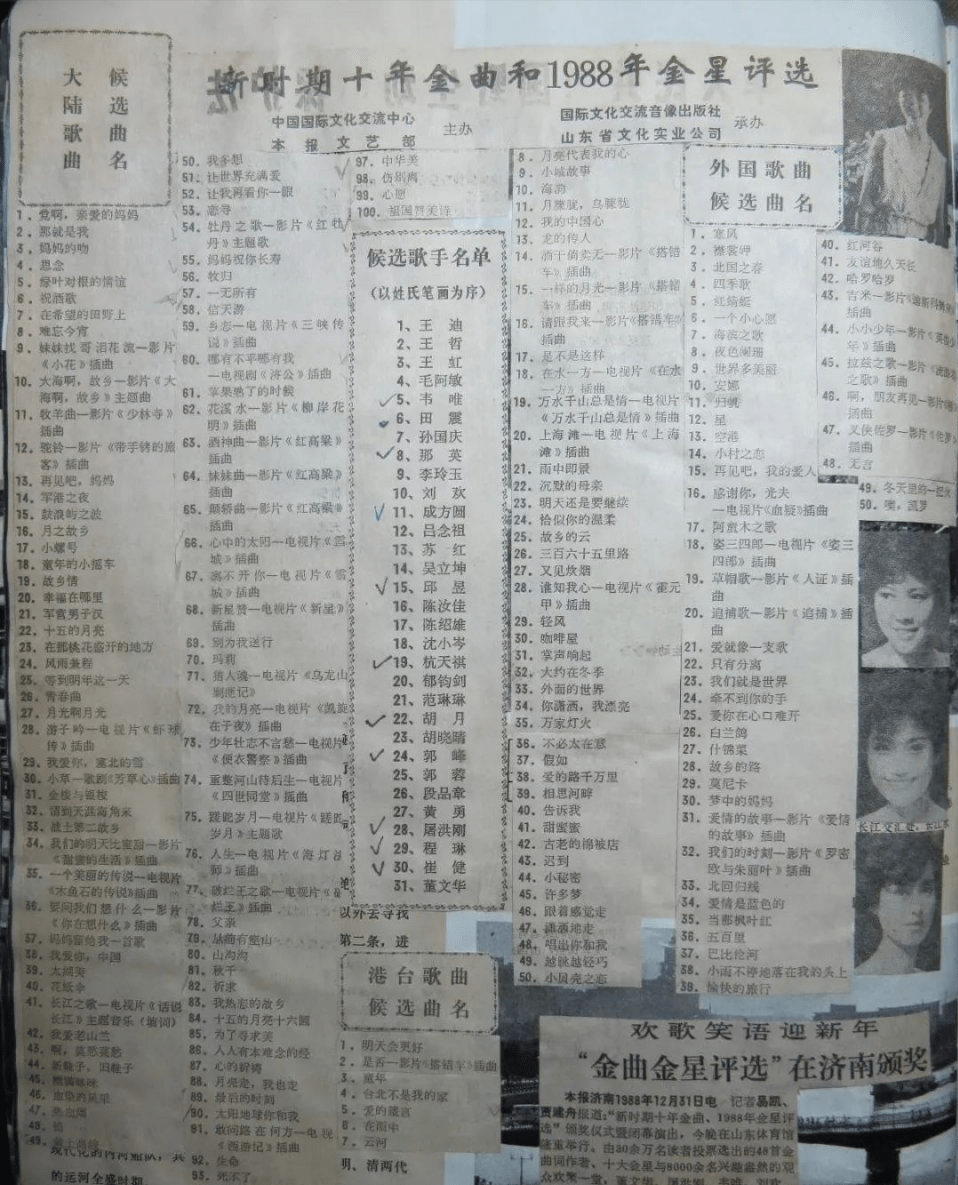 新时期十年金曲和1988年金星评选
中国国际文化交流中心
本报文艺部
主办
国际文化交流音像出版社
山东省文化实业公司
承办
大陆歌曲
候选曲名
1．党啊，亲爱的妈妈
2．那就是我
3．妈妈的吻
4．思念
5．绿叶对根的情谊
6．祝酒歌
7．在希望的田野上
8．难忘今宵
9．妹妹找哥泪花流—影片
《小花》插曲
10．大海啊，故乡—影片《大
海啊，故乡》主题曲
11．牧羊曲—影片《少林寺》
插曲
12．驼铃—影片《带手铐的旅
客》插曲
13．再见吧，妈妈
14．军港之夜
15．鼓浪屿之波
16．月之故乡
17．小螺号
18．童年的小摇车
19．故乡情
20．幸福在哪里
21．军营男子汉
22．十五的月亮
23．在那桃花盛开的地方
24．风雨兼程
25．等到明年这一天
26．青春曲
27．月光啊月光
28．游子吟—电视片《虾球
传》插曲
29．我爱你，塞北的雪
30．小草—歌剧《芳草心》插曲
31．金梭与银梭
32．请到天涯海角来
33．战士第二故乡
34．我们的明天比蜜甜—影片
《甜蜜的生活》插曲
35．一个美丽的传说—电视片
《木鱼石的传说》插曲
36．要问我们想什么—影片
《你在想什么》插曲
37．妈妈留给我一首歌
38．我爱你，中国
39．太湖美
40．花纸伞
41．长江之歌—电视片《话说
长江》主题音乐（填词）
42．我爱老山兰
43．啊，莫愁莫愁
44．新鞋子，旧鞋子
46．血染的风采
47．热血颂
50．我多想
51．让世界充满爱
52．让我再看你一眼
53．恋寻
54．牡丹之歌—影片《红牡
丹》主题歌
55．妈妈祝你长寿
56．牧归
57．一无所有
58．信天游
59．乡恋—电视片《三峡传
说》插曲
60．哪有不平哪有我
—电视剧《济公》插曲
61．苹果熟了的时候
62．花溪水—影片《柳岸花
明》插曲
63．酒神曲—影片《红高粱》
插曲
64．妹妹曲—影片《红高粱》
插曲
65．颠轿曲—影片《红高粱》
插曲
66．心中的太阳—电视片《雪
城》插曲
67．离不开你—电视片《雪
城》插曲
68．新星赞—电视片《新星》
插曲
69．别为我送行
70．玛莉
71．猎人魂—电视片《乌龙山
剿匪记》
72．我的月亮—电视片《凯旋
在子夜》插曲
73．少年壮志不言愁—电视片
《便衣警察》插曲
74．重整河山待后生—电视片
《四世同堂》插曲
75．蹉跎岁月—电视片《蹉跎
岁月》主题歌
76．人生—电视片《海灯法
师》插曲
77．破烂王之歌—电视片《破
烂王》插曲
78．父亲
79．丛商有座山
80．山沟沟
81．秋千
82．祈求
83．我热恋的故乡
84．十五的月亮十六圆
85．为了寻求美
86．人人有本难念的经
87．心的祈祷
88．月亮走，我也走
89．最后的时刻
90．太阳地球你和我
91．敢问路在何方—电视
《西游记》插曲
92．生命
93．死不了
97．中华美
98．伤别离
99．心愿
100．祖国赞美诗
候选歌手名单
（以姓氏笔画为序）
1、王迪
2、王哲
3、王虹
4、毛阿敏
5、韦唯
6、田震
7、孙国庆
8、那英
9、李玲玉
10、刘欢
11、成方圆
12、吕念祖
13、苏红
14、吴立坤
15、邱昱
16、陈汝佳
17、陈绍雄
18、沈小岑
19、杭天祺
20、郁钧剑
21、范琳琳
22、胡月
23、胡晓晴
24、郭峰
25、郭蓉
26、段品章
27、黄勇
28、屠洪刚
29、程琳
30、崔健
31、董文华
以外去寻找
第二条，进
港台歌曲
候选曲名
1．明天会更好
2．是否—影片《搭错车》插曲
3．童年
4．台北不是我的家
5．爱的箴言
6．在雨中
7．云河
明、清两代
8．月亮代表我的心
9．小城故事
10．海韵
11．月朦胧，鸟朦胧
12．我的中国心
13．龙的传人
14．酒干倘卖无—影片《搭错
车》插曲
15．一样的月光—影片《搭错
车》插曲
16．请跟我来—影片《搭错车》
插曲
17．是不是这样
18．在水一方—电视片《在水
一方》插曲
19．万水千山总是情—电视片
《万水千山总是情》插曲
20．上海滩—电视片《上海
滩》插曲
21．雨中即景
22．沉默的母亲
23．明天还是要继续
24．恰似你的温柔
25．故乡的云
26．三百六十五里路
27．又见炊烟
28．谁知我心—电视片《霍元
甲》插曲
29．轻风
30．咖啡屋
31．掌声响起
32．大约在冬季
33．外面的世界
34．你潇洒，我漂亮
35．万家灯火
36．不必太在意
37．假如
38．爱的路千万里
39．相思河畔
40．告诉我
41．甜蜜蜜
42．古老的棉被店
43．迟到
44．小秘密
45．许多梦
46．跟着感觉走
47．潇洒地走
48．唱出你和我
49．越脉越轻巧
50．小贝壳之恋
外国歌曲
候选曲名
1．寒风
2．襟裳岬
3．北国之春
4．四季歌
5．红蜻蜓
6．一个小心愿
7．海滨之歌
8．夜色阑珊
9．世界多美丽
10．安娜
11．归帆
12．星
13．空港
14．小村之恋
15．再见吧，我的爱人
16．感谢你，光夫
—电视片《血疑》插曲
17．阿蛮木之歌
18．姿三四郎—电视片《姿三
四郎》插曲
19．草帽歌—影片《人证》插
曲
20．追捕歌—影片《追捕》插
曲
21．爱就像一支歌
22．只有分离
23．我们就是世界
24．牵不到你的手
25．爱你在心口难开
26．白兰鸽
27．什锦菜
28．故乡的路
29．莫尼卡
30．梦中的妈妈
31．爱情的故事—影片《爱情
的故事》插曲
32．我们的时刻—影片《罗密
欧与朱丽叶》插曲
33．北回归线
34．爱情是蓝色的
35．当那枫叶红
36．五百里
37．巴比伦河
38．小雨不停地落在我的头上
39．愉快的旅行
40．红河谷
41．友谊地久天长
42．哈罗哈罗
43．吉米—影片
插曲
44．小小少年—影片《英俊少
年》插曲
45．拉兹之歌—影片《流浪
之歌》插曲
46．啊，朋友再见—影片
插曲
47．叉侠佐罗—影片《佐罗》
插曲
48．无言
49．冬天里的一把火
50．噢，凯罗
长江交汇处，长江水
欢歌笑语迎新年
“金曲金星评选”在济南颁奖
本报济南1988年12月31日电 记者易凯、
贾建舟报道：“新时期十年金曲、1988年金星评
选”颁奖仪式暨闭幕演出，今晚在山东体育馆
隆重举行。由30余万名读者投票选出的48首金
曲词作者、十大金星与8000余名兴趣盎然的观
众欢聚一堂，董文华、屠洪刚、韦唯、刘欢
的运河全盛时期